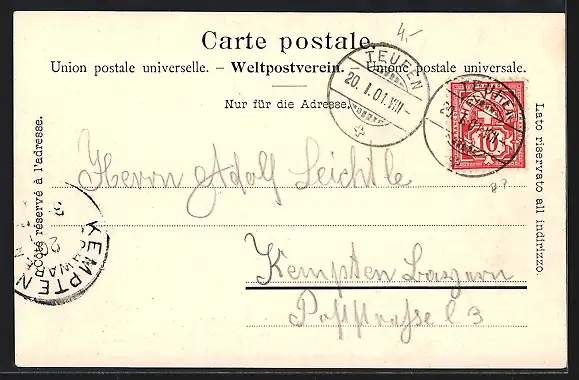 4,-
Carte postale.
Union postale universelle. – Weltpostverein. – Unione postale universale.
Nur für die Adresse.
TEUFEN
20. I. 01. VIII–
TEUFEN
20. I. 01. VIII
10
Côté réservé à l'adresse.
Lato riservato all indirizzo.
Herrn Adolf Leichtle
Kempten Bayern
Poststrasse l 3
KEMPTEN